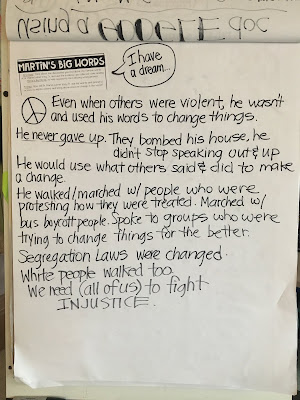 using a GOOGLE doc
MARTIN'S BIG WORDS
I have
a dream...
Even when others were violent, he wasn't
and used his words to change things.
He never gave up. They bombed his house, he
didn't stop speaking out & up
He would use what others said & did to make
a change.
He walked/marched w/ people who were
protesting how they were treated. Marched w/
bus boycott people. Spoke to groups who were
trying to change things for the better.
Segregation Laws were changed.
White people walked too.
We need (all of us) to fight
INJUSTICE.